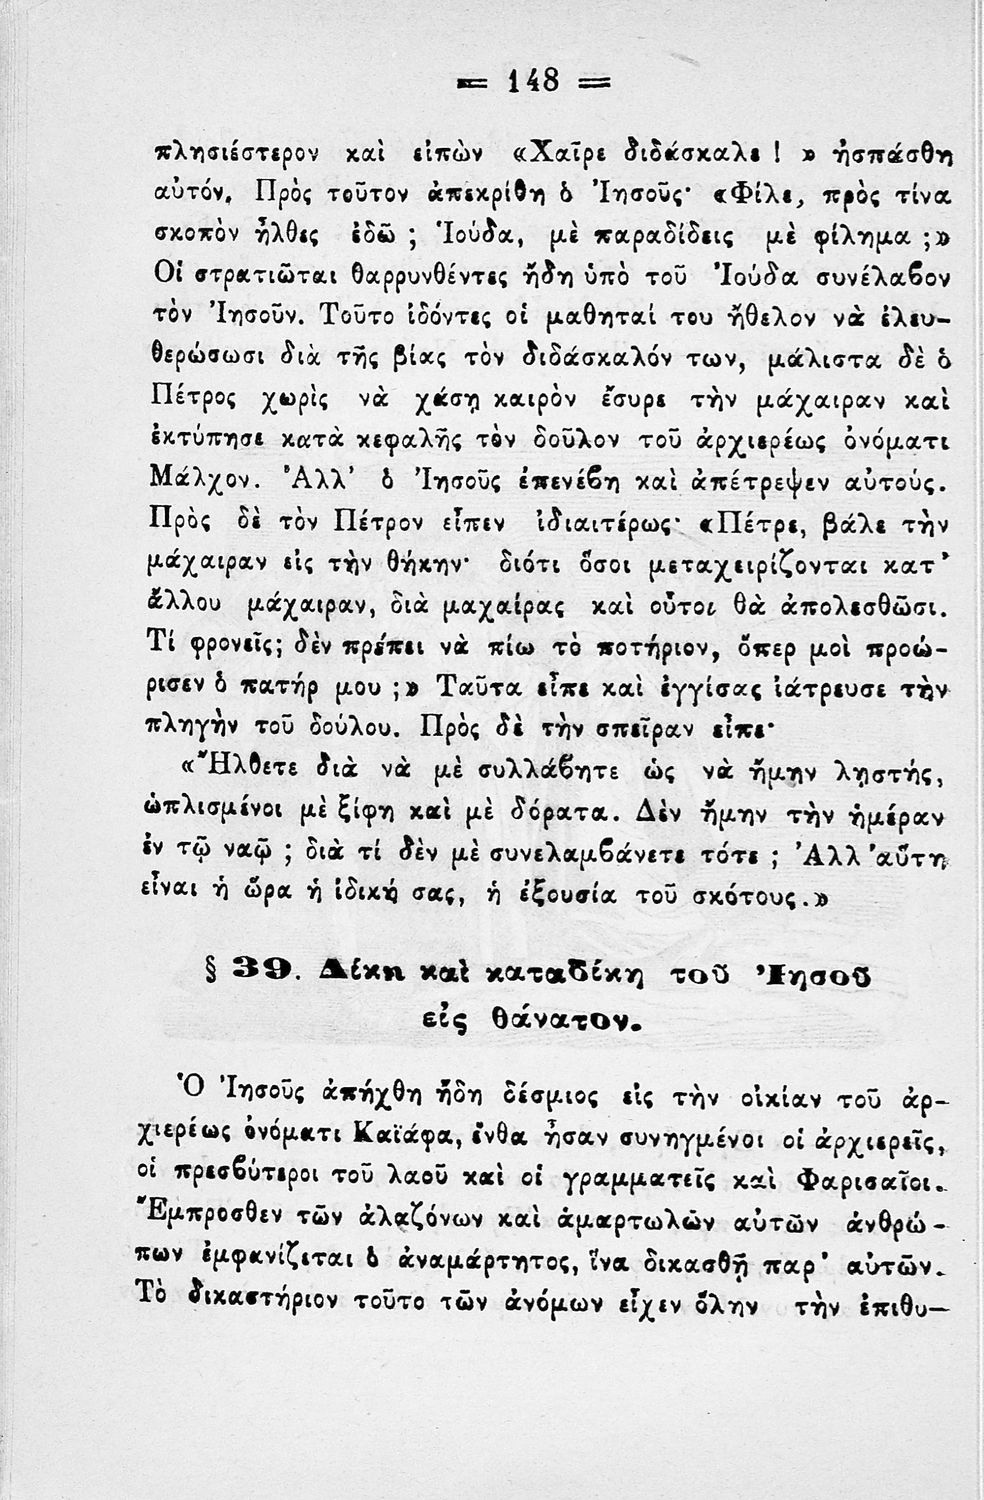 = 148 =
πλησιέστερον καὶ εἰπὼν «Χαῖρε διδάσκαλε ! » ἠσπάσθη
αὐτόν. Πρὸς τοῦτον ἀπεκρίθη ὁ Ἰησοῦς· «Φίλε, πρὸς τίνα
σκοπὸν ἦλθες ἐδῶ ; Ἰούδα, μὲ παραδίδεις μὲ φίλημα ;»
Οἱ στρατιῶται θαρρυνθέντες ἤδη ὑπὸ τοῦ Ἰούδα συνέλαβον
τὸν Ἰησοῦν. Τοῦτο ἰδόντες οἱ μαθηταί του ἤθελον νὰ ἐλευ-
θερώσωσι διὰ τῆς βίας τὸν διδάσκαλόν των, μάλιστα δὲ ὁ
Πέτρος χωρὶς νὰ χάσῃ καιρὸν ἔσυρε τὴν μάχαιραν καὶ
ἐκτύπησε κατὰ κεφαλῆς τὸν δοῦλον τοῦ ἀρχιερέως ὀνόματι
Μάλχον. Ἀλλ' ὁ Ἰησοῦς ἐπενέβη καὶ ἀπέτρεψεν αὐτούς.
Πρὸς δὲ τὸν Πέτρον εἶπεν ἰδιαιτέρως· «Πέτρε, βάλε τὴν
μάχαιραν εἰς τὴν θήκην· διότι ὅσοι μεταχειρίζονται κατ'
ἄλλου μάχαιραν, διὰ μαχαίρας καὶ οὗτοι θὰ ἀπολεσθῶσι.
Τί φρονεῖς; δὲν πρέπει νὰ πίω τὸ ποτήριον, ὅπερ μοὶ προώ-
ρισεν ὁ πατήρ μου ;» Ταῦτα εἶπε καὶ ἐγγίσας ἰάτρευσε τὴν
πληγὴν τοῦ δούλου. Πρὸς δὲ τὴν σπεῖραν εἶπε·
«Ἤλθετε διὰ νὰ μὲ συλλάβητε ὡς νὰ ἤμην λῃστής,
ὡπλισμένοι μὲ ξίφη καὶ μὲ δόρατα. Δὲν ἤμην τὴν ἡμέραν
ἐν τῷ ναῷ ; διὰ τί δὲν μὲ συνελαμβάνετε τότε ; Ἀλλ' αὕτη
εἶναι ἡ ὥρα ἡ ἰδική σας, ἡ ἐξουσία τοῦ σκότους.»
§ 39. Δίκη καὶ καταδίκη τοῦ Ἰησοῦ
εἰς θάνατον.
Ὁ Ἰησοῦς ἀπήχθη ἤδη δέσμιος εἰς τὴν οἰκίαν τοῦ ἀρ-
χιερέως ὀνόματι Καϊάφα, ἔνθα ἦσαν συνηγμένοι οἱ ἀρχιερεῖς,
οἱ πρεσβύτεροι τοῦ λαοῦ καὶ οἱ γραμματεῖς καὶ Φαρισαῖοι.
Ἔμπροσθεν τῶν ἀλαζόνων καὶ ἁμαρτωλῶν αὐτῶν ἀνθρώ-
πων ἐμφανίζεται ὁ ἀναμάρτητος, ἵνα δικασθῇ παρ' αὐτῶν.
Τὸ δικαστήριον τοῦτο τῶν ἀνόμων εἶχεν ὅλην τὴν ἐπιθυ-